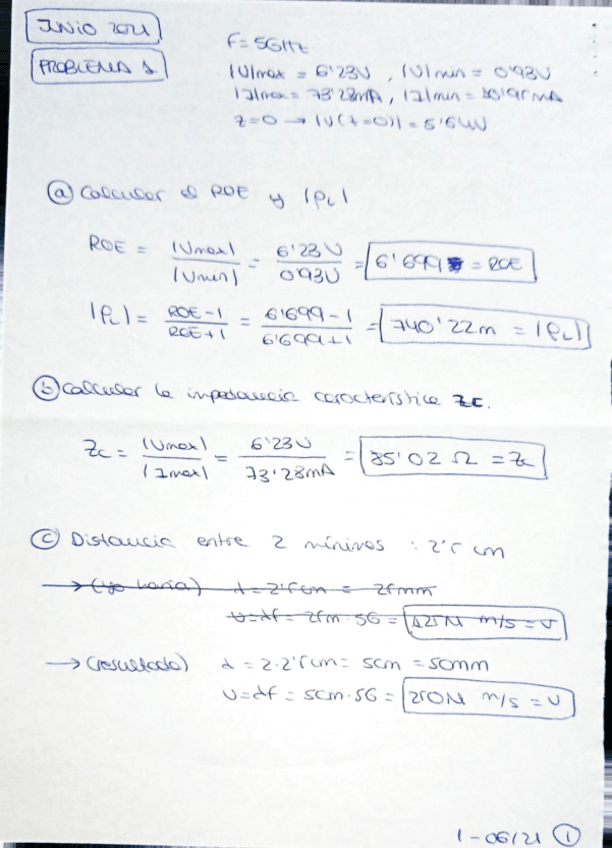 JUNIO 2021
PROBLEMA 1
F = 5GHz
|V|max = 6'23V , |V|min = 0'93V
|I|max = 73'28mA, |I|min = 10'95mA
z=0 → |V(z=0)| =
a) Calcular el ROE y |ρL|
ROE = |Vmax| / |Vmin| = 6'23V / 0'93V = 6'699 = ROE
|ρL| = ROE-1 / ROE+1 = 6'699-1 / 6'699+1 = 740'22m = |ρL|
b) Calcular la impedancia característica Zc.
Zc = |Vmax| / |Imax| = 6'23V / 73'28mA = 85'02 Ω = Zc
c) Distancia entre 2 mínimos : 2'5 cm
→ (yo haría) λ = 2'5cm = 25mm
v=λf = 25m·5G = 125M m/s = v
→ (resultado) λ = 2·2'5cm = 5cm = 50mm
v=λf = 5cm·5G = 250M m/s = v
1-06/21 1